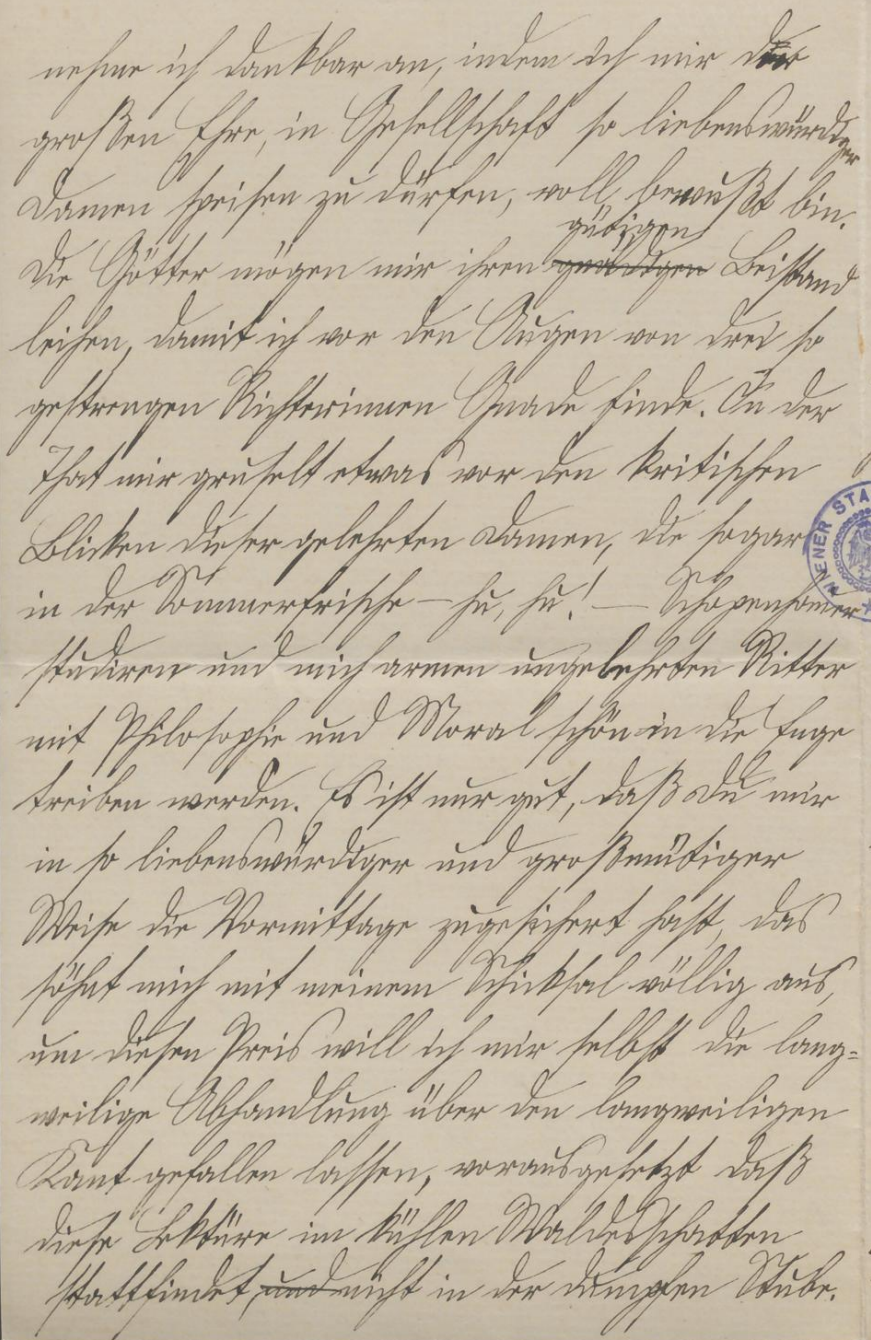 nehme ich dankbar an, indem ich mir der
großen Ehre, in Gesellschaft so liebenswürdiger
Damen speisen zu dürfen, voll bewußt bin.
gütigen
Die Götter mögen mir ihren gnädigen Beistand
leihen, damit ich vor den Augen von drei so
gestrengen Richterinnen Gnade finde. In der
That mir gruselt etwas vor den kritischen
Blicken dieser gelehrten Damen, die sogar
in der Sommerfrische – hu, hu! – Schopenhauer
studiren und mich armen ungelehrten Ritter
mit Philosophie und Moral schön in die Enge
treiben werden. Es ist nur gut, daß Du mir
in so liebenswürdiger und großmütiger
Weise die Vormittage zugesichert hast, das
söhnt mich mit meinem Schicksal völlig aus,
um diesen Preis will ich mir selbst die lang=
weilige Abhandlung über den langweiligen
Kant gefallen lassen, vorausgesetzt daß
diese Lektüre im kühlen Waldesschatten
stattfindet, und nicht in der dumpfen Stube.
WIENER STA